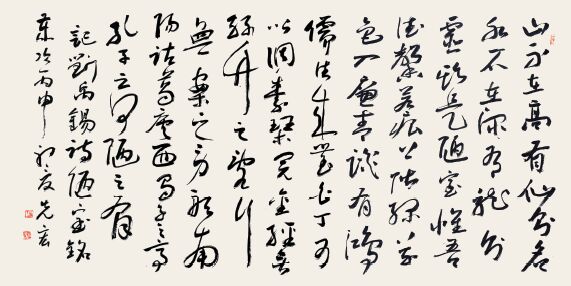 山不在高有仙則名
水不在深有龍則
靈斯是陋室惟吾
德馨苔痕上階綠草
色入簾青談有鴻
儒往來無白丁可
以調素琴閱金經無
絲竹之亂耳
無案之勞形南
陽諸葛廬西蜀子雲亭
孔子云何陋之有
記劉禹錫詩陋室銘
歲次丙申初夏先宏